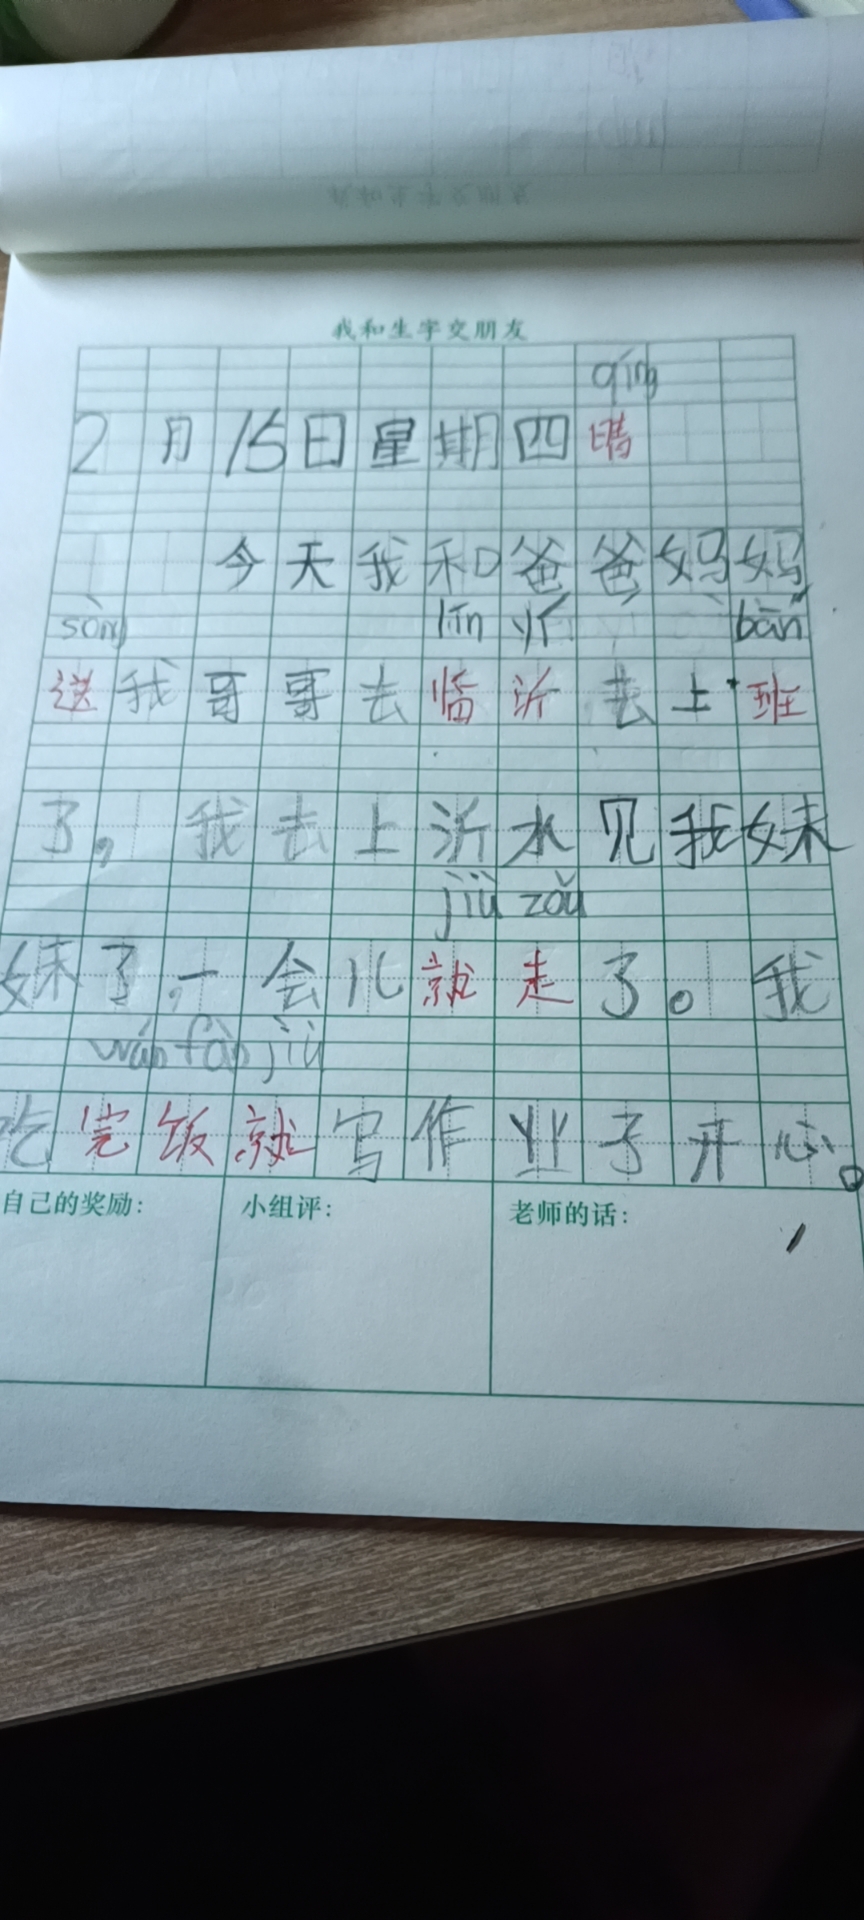 我和生字交朋友
qíng
2月15日星期四晴
今天我和爸爸妈妈
sòng lín yí bān
送我哥哥去临沂去上班
了，我去上沂水见我妹
jiù zǒu
妹了，一会儿就走了。我
wán fàn jiù
吃完饭就写作业了开心。
自己的奖励： 小组评： 老师的话：